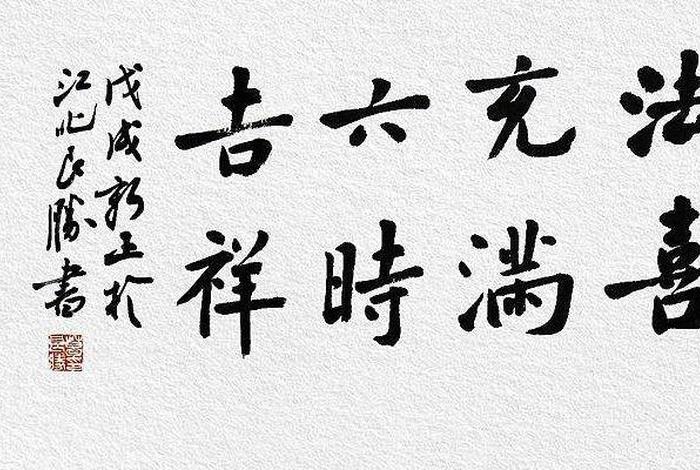 法喜
充滿
六時
吉祥
戊戌新正於
江北良勝書